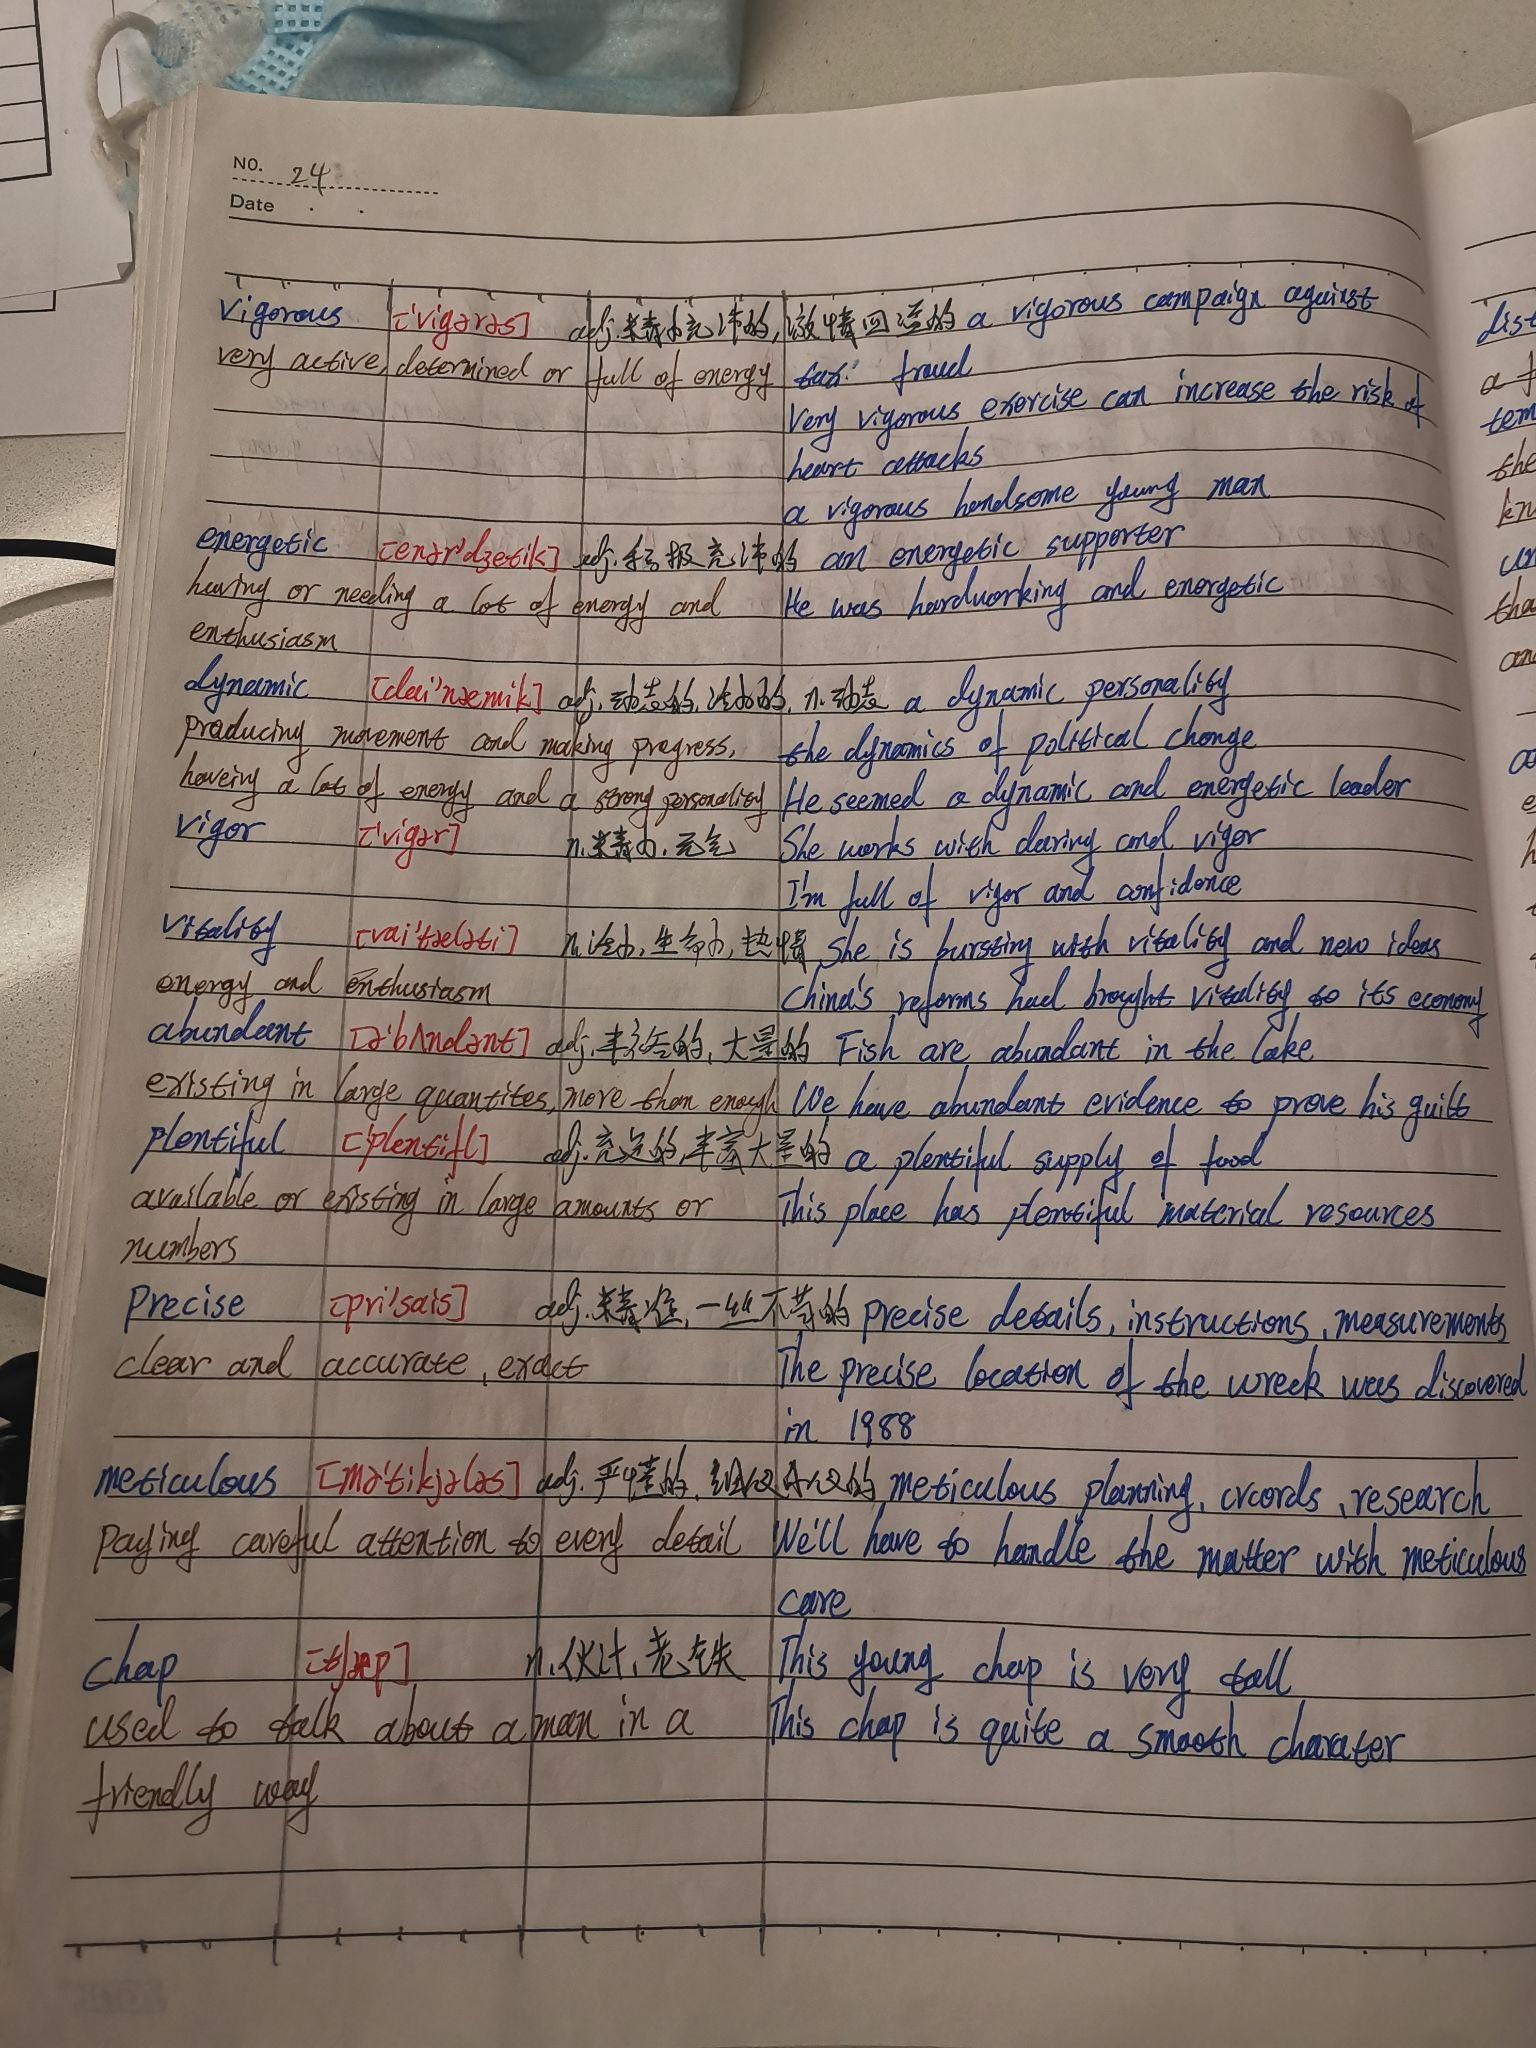 NO. 24
Date
vigorous ['vigərəs] adj.精力充沛的,激情四溢的 a vigorous campaign against
very active, determined or full of energy tax fraud
Very vigorous exercise can increase the risk of
heart attacks
a vigorous handsome young man
energetic [enər'dʒetik] adj.积极充沛的 an energetic supporter
having or needing a lot of energy and He was hardworking and energetic
enthusiasm
dynamic [dai'næmik] adj.动态的,活力的, n.动态 a dynamic personality
producing movement and making progress, the dynamics of political change
haveing a lot of energy and a strong personality He seemed a dynamic and energetic leader
vigor ['vigər] n.精力,元气 She works with daring and vigor
I'm full of vigor and confidence
vitality [vai'tæləti] n.活力,生命力,热情 She is bursting with vitality and new ideas
energy and enthusiasm China's reforms had brought vitality to its economy
abundant [ə'bʌndənt] adj.丰裕的,大量的 Fish are abundant in the lake
existing in large quantites, more than enough We have abundant evidence to prove his guilt
plentiful ['plentifl] adj.充足的,丰富大量的 a plentiful supply of food
available or existing in large amounts or This place has plentiful material resources
numbers
Precise [pri'sais] adj.精准,一丝不苟的 precise details, instructions, measurements
clear and accurate, exact The precise location of the wreck was discovered
in 1988
meticulous [mə'tikjələs] adj.严谨的,细致的 meticulous planning, crcords, research
Paying careful attention to every detail We'll have to handle the matter with meticulous
care
Chap [tʃæp] n.伙计,老铁 This young chap is very tall
used to talk about a man in a This chap is quite a smooth charater
friendly way